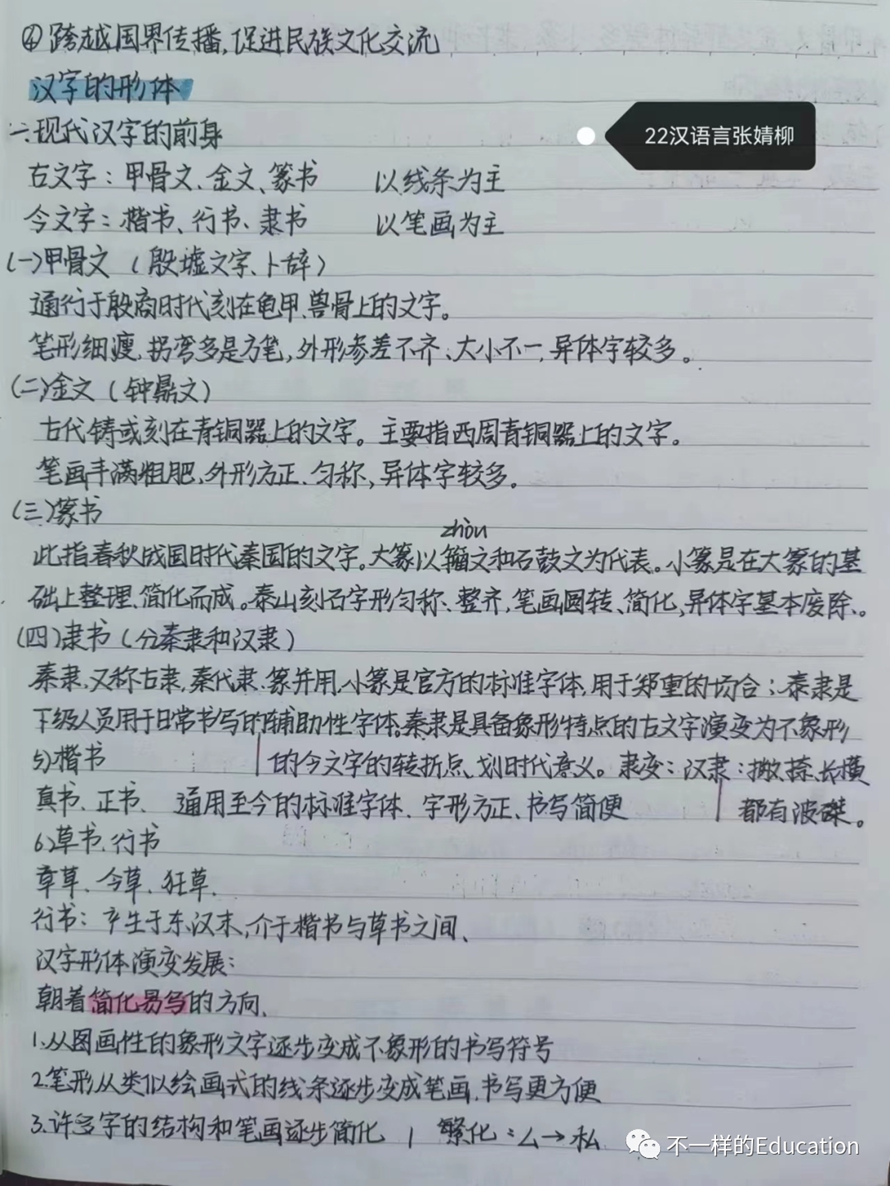 ④跨越国界传播,促进民族文化交流
汉字的形体
一、现代汉字的前身
22汉语言张婧柳
古文字:甲骨文、金文、篆书 以线条为主
今文字:楷书、行书、隶书 以笔画为主
(一)甲骨文 (殷墟文字、卜辞)
通行于殷商时代刻在龟甲、兽骨上的文字。
笔形细瘦,拐弯多是方笔,外形参差不齐、大小不一,异体字较多。
(二)金文 (钟鼎文)
古代铸或刻在青铜器上的文字。主要指西周青铜器上的文字。
笔画丰满粗肥,外形方正、匀称,异体字较多。
(三)篆书
zhòu
此指春秋战国时代秦国的文字。大篆以籀文和石鼓文为代表。小篆是在大篆的基
础上整理、简化而成。泰山刻石字形匀称、整齐,笔画圆转、简化,异体字基本废除、。
(四)隶书 (分秦隶和汉隶)
秦隶,又称古隶,秦代隶、篆并用,小篆是官方的标准字体,用于郑重的场合;秦隶是
下级人员用于日常书写的辅助性字体。秦隶是具备象形特点的古文字演变为不象形
5)楷书 的今文字的转折点、划时代意义。隶变:汉隶:撇、捺、长横
真书、正书、 通用至今的标准字体、字形方正、书写简便 都有波磔。
6、草书、行书
章草、今草、狂草、
行书:产生于东汉末,介于楷书与草书之间、
汉字形体演变发展:
朝着简化易写的方向、
1、从图画性的象形文字逐步变成不象形的书写符号
2、笔形从类似绘画式的线条逐步变成笔画,书写更方便
3、许多字的结构和笔画逐步简化 | 繁化:厶→私
不一样的Education